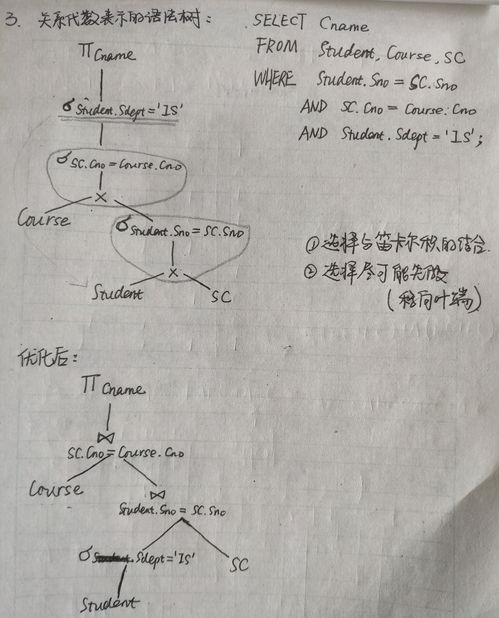 3. 关系代数表示的语法树:
SELECT Cname
FROM Student, Course, SC
WHERE Student.Sno = SC.Sno
AND SC.Cno = Course.Cno
AND Student.Sdept = 'IS';
Π Cname
σ Student.Sdept = 'IS'
σ SC.Cno = Course.Cno
×
Course
σ Student.Sno = SC.Sno
×
Student
SC
① 选择与笛卡尔积的结合.
② 选择尽可能先做
(移向叶端)
优化后:
Π Cname
⋈
SC.Cno = Course.Cno
Course
⋈
Student.Sno = SC.Sno
σ Sdept = 'IS'
SC
Student